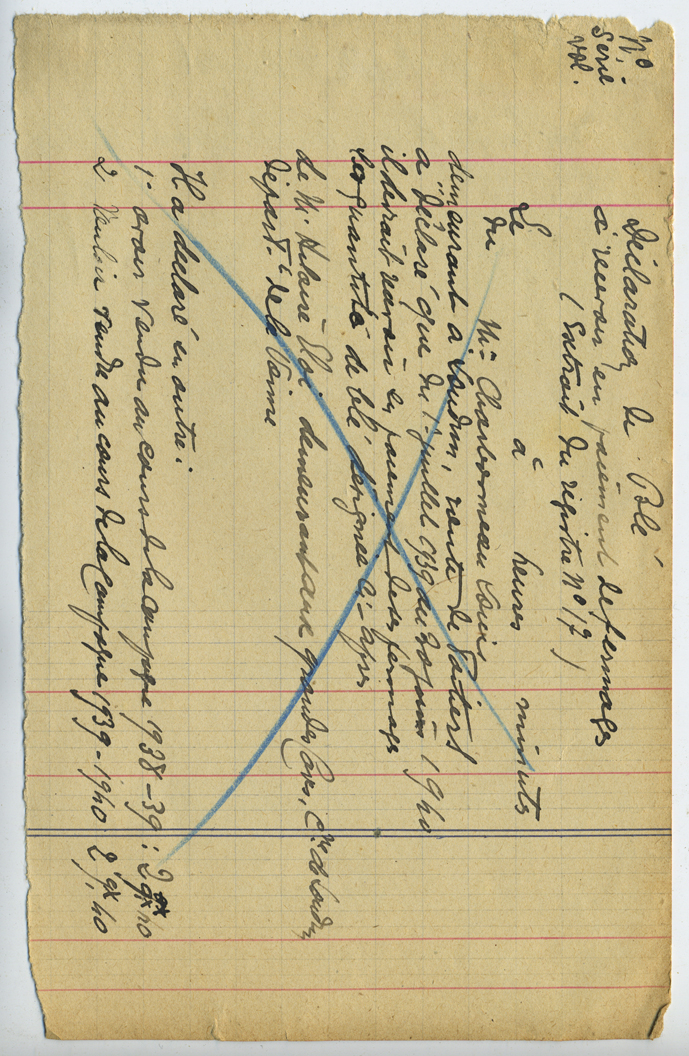 N°
Série
vol.
Déclaration de Blé
à recevoir en paiement de fermages
(Extrait du registre N° 17)
Le à heures minutes
du Mr Charbonneau Louis
demeurant à Loudun, route de Poitiers
a déclaré que du 1er juillet 1939 au 30 juin 1940
il devrait recevoir en paiement de ses fermages
les quantités de blé désignées ci-après
de Mr Hilaire Eloi demeurant aux grandes Caves, Cne de Loudun
Départt de la Vienne
Il a déclaré en outre :
1° avoir vendu au cours de la campagne 1938-39 : 2 qx 40
2 Vouloir vendre au cours de la Campagne 1939-1940 2 qx, 40